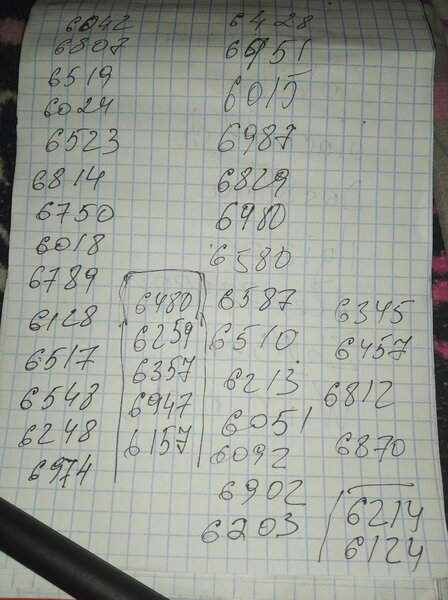 6042
6807
6519
6024
6523
6814
6750
6018
6789
6128
6517
6548
6248
6974
6480
6259
6357
6947
6157
6428
6751
6015
6987
6829
6980
6580
6587
6510
6213
6051
6092
6902
6203
6345
6457
6812
6870
6214
6124